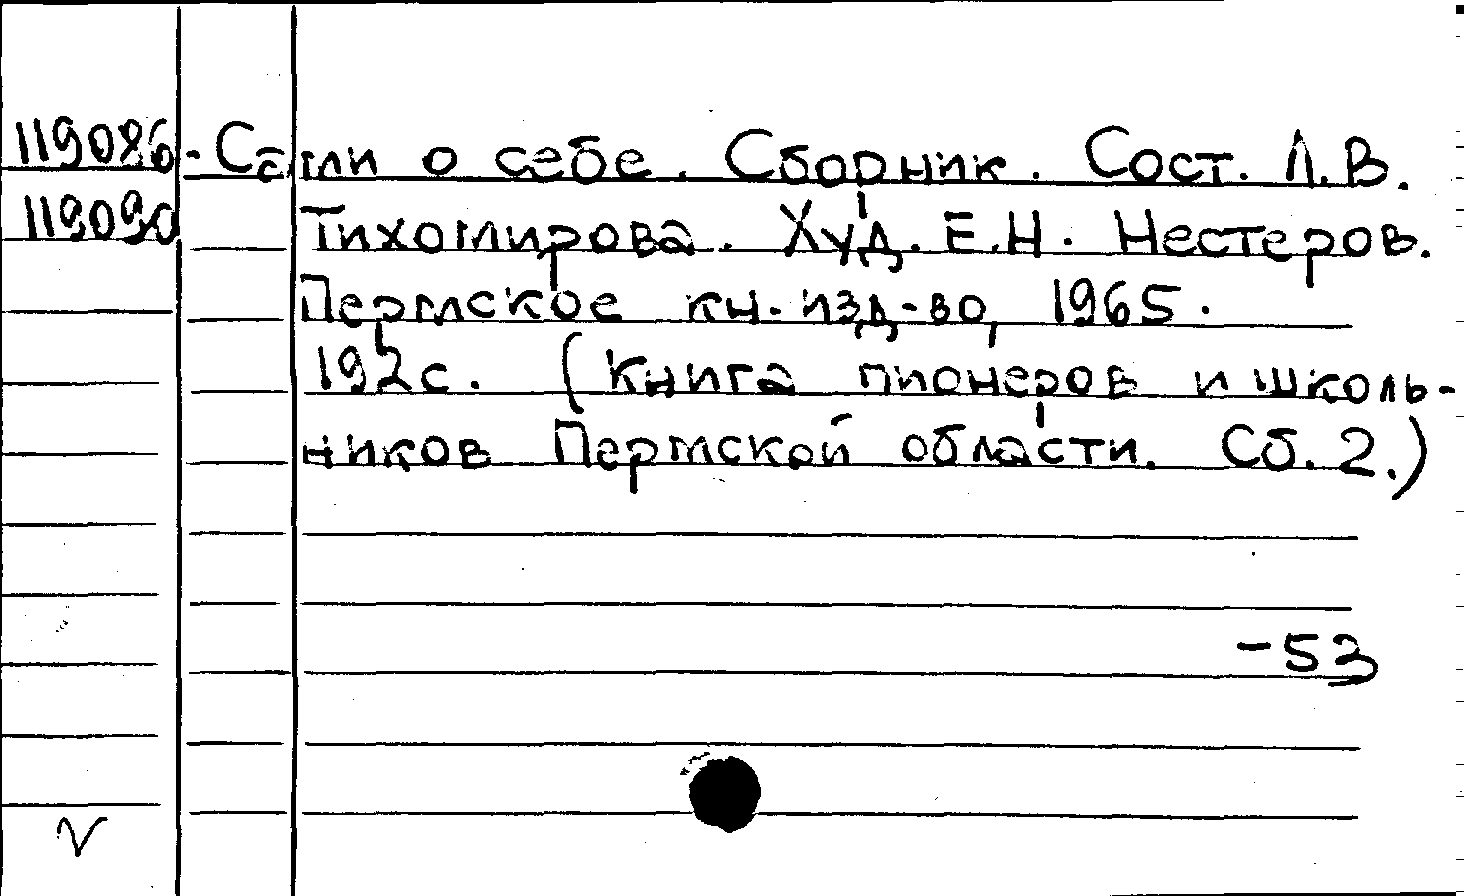 119086- Сами о себе. Сборник. Сост. Л.В.
119090 Тихомирова. Худ. Е.Н. Нестеров.
Пермское кн. изд-во, 1965.
192с. (Книга пионеров и школь-
ников Пермской области. Сб. 2.)
-53
V